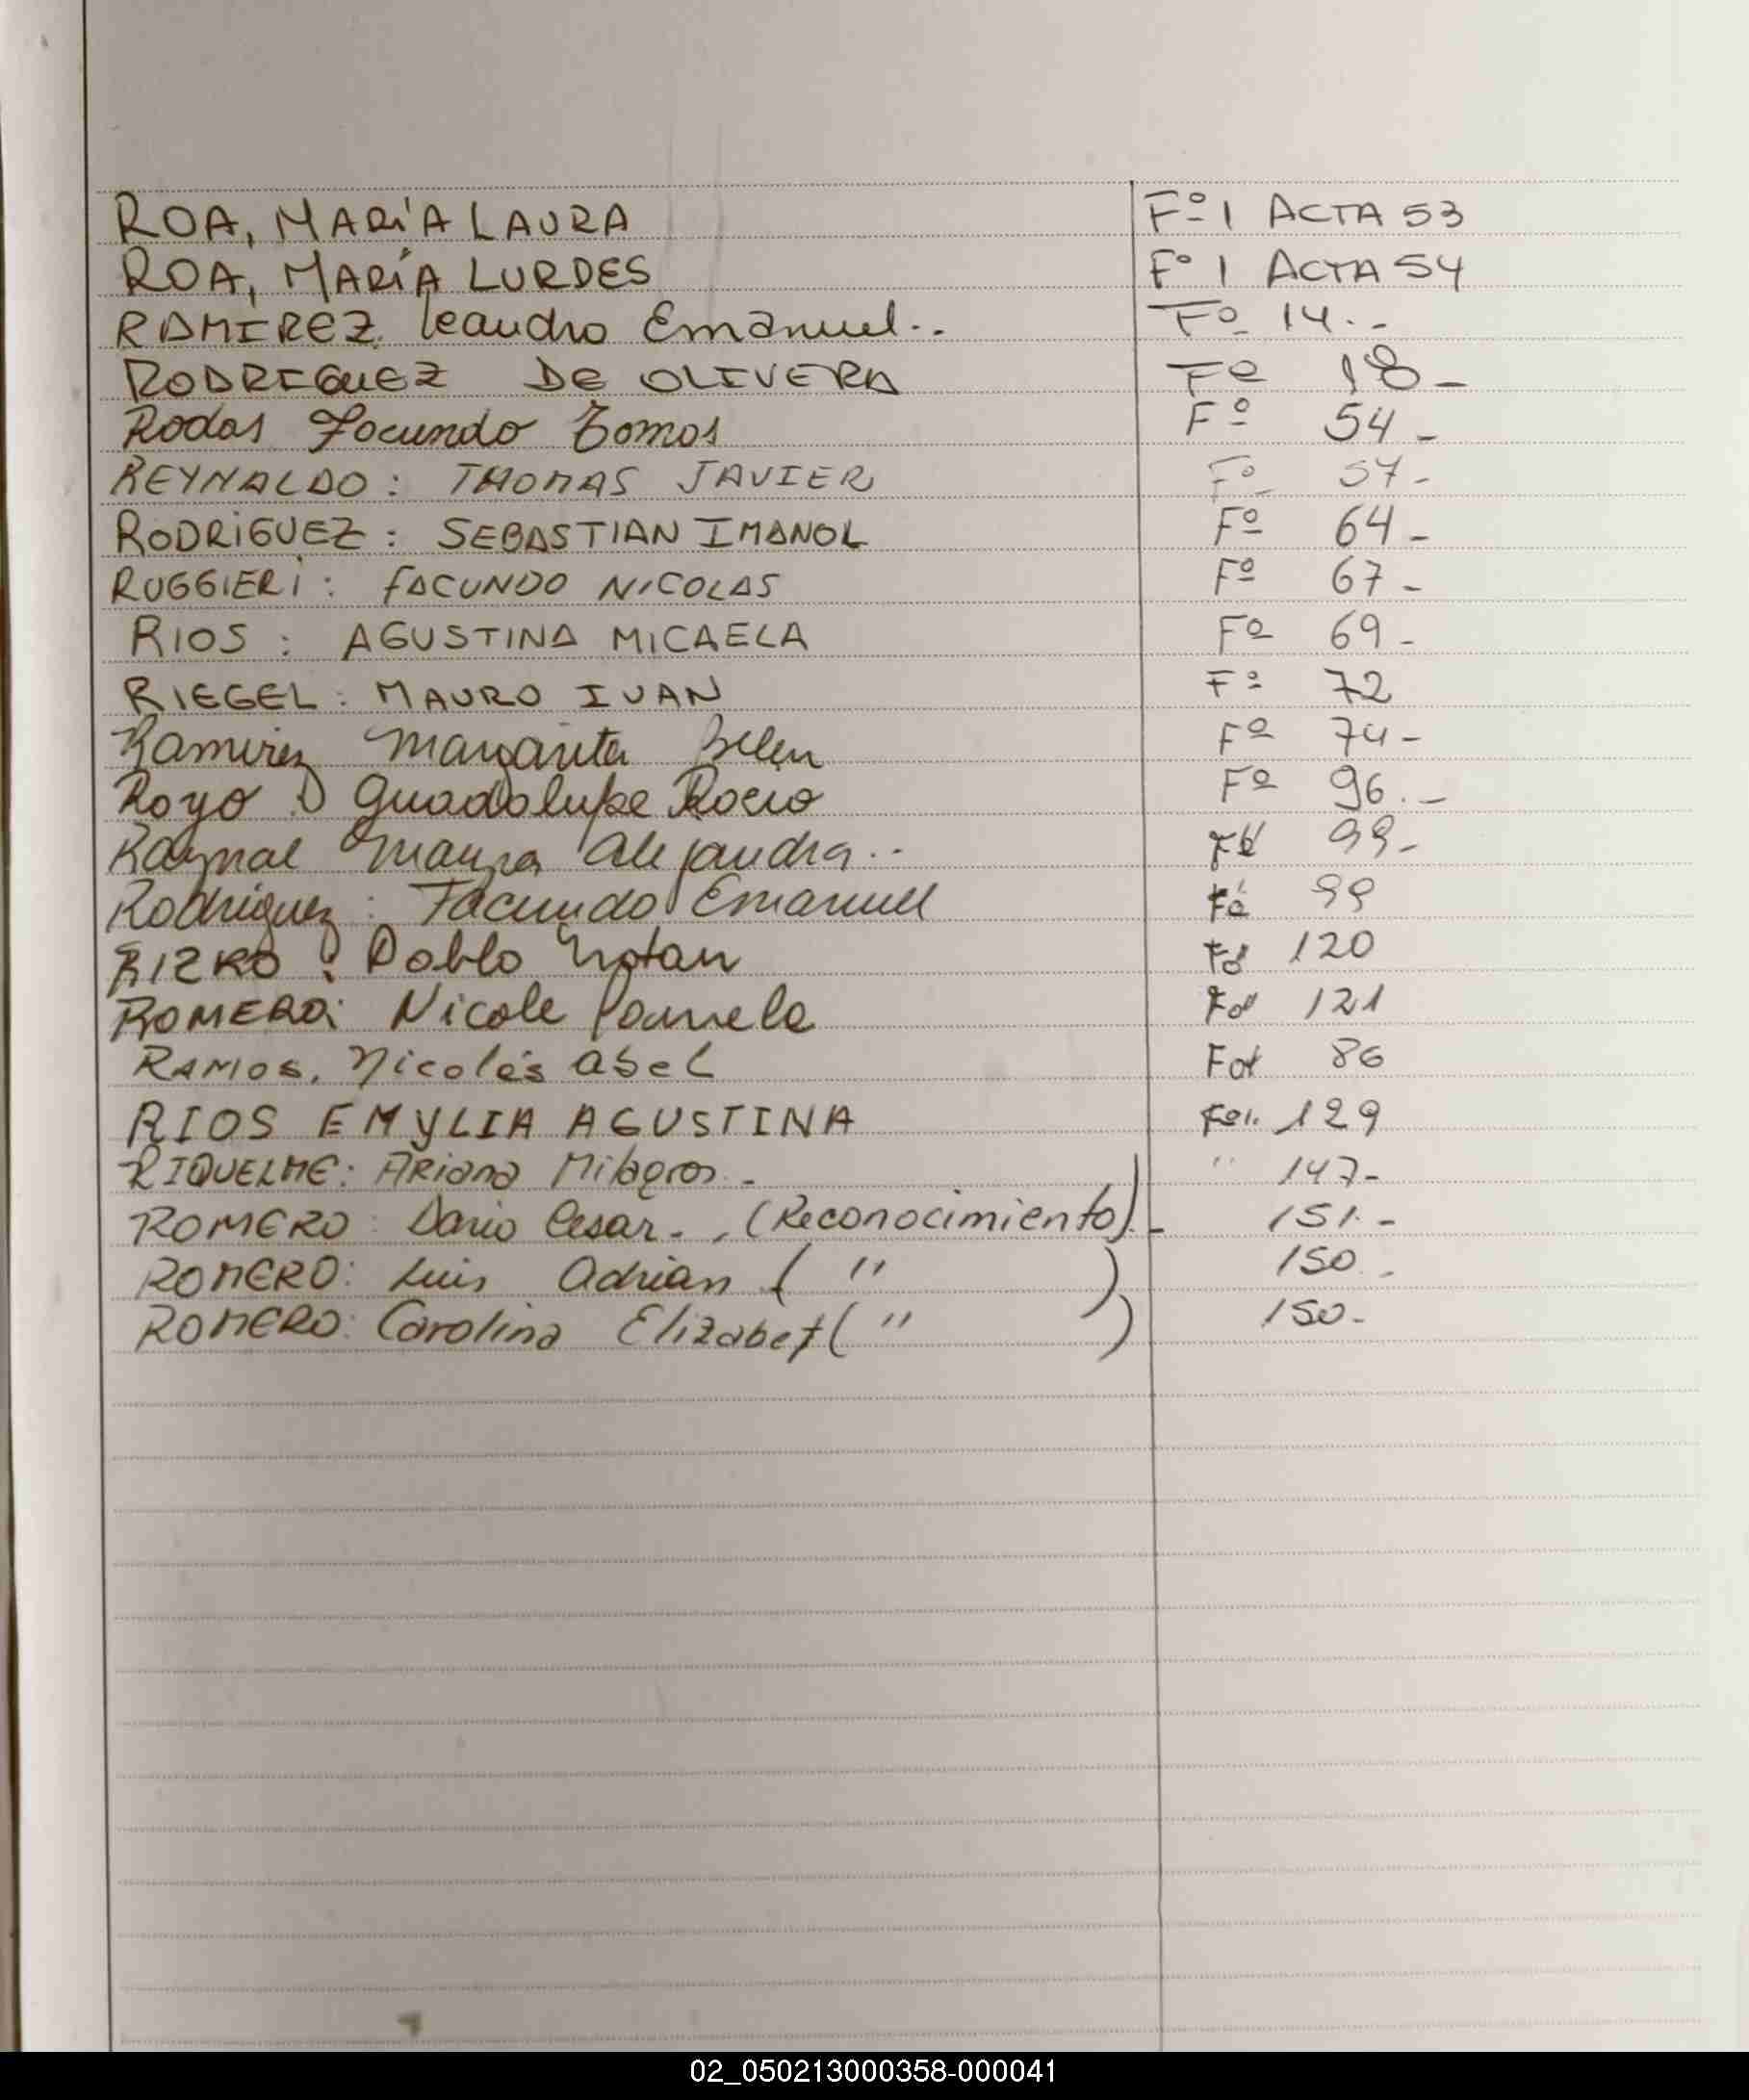 ROA, MARÍA LAURA Fº 1 ACTA 53
ROA, MARÍA LURDES Fº 1 ACTA 54
RAMIREZ. Leandro Emanuel.. Fº 14.-
RODRIGUEZ DE OLIVERA Fº 18-
Rodas Facundo Tomas Fº 54-
REYNALDO: THOMAS JAVIER Fº 57-
RODRIGUEZ: SEBASTIAN IMANOL Fº 64-
RUGGIERI: FACUNDO NICOLAS Fº 67-
RIOS: AGUSTINA MICAELA Fº 69-
RIEGEL: MAURO IVAN Fº 72
Ramirez Margarita Belen Fº 74-
Royo Guadalupe Rocio Fº 96.-
Raynal Mayra Alejandra.. Fº 99-
Rodriguez: Facundo Emanuel Fº 99
Pablo Natan 120
ROMERO: Nicole Pamela Fol 121
RAMOS, Nicolás Abel Fol 86
RIOS EMYLIA AGUSTINA Fol. 129
RIQUELME: Ariana Milagros.- " 147-
ROMERO: Dario Cesar-. (Reconocimiento).- 151.-
ROMERO: Luis Adrian ( " ) 150.-
ROMERO: Carolina Elizabet ( " ) 150-
02_050213000358-000041